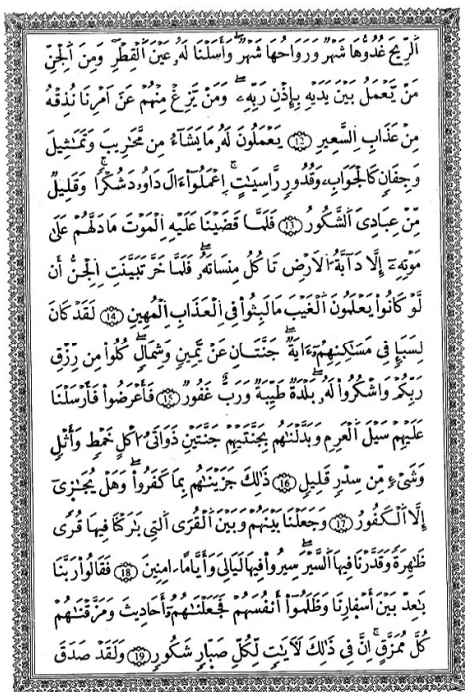 اَ۬لرِّيحَ غُدُوُّهَا شَهْرٌ وَرَوَاحُهَا شَهْرٌۖ وَأَسَلْنَا لَهُۥ عَيْنَ اَ۬لْقِطْرِۖ وَمِنَ اَ۬لْجِنِّ
مَنْ يَّعْمَلُ بَيْنَ يَدَيْهِ بِإِذْنِ رَبِّهِۦۖ وَمَنْ يَّزِغْ مِنْهُمْ عَنَ اَمْرِنَا نُذِقْهُ
مِنْ عَذَابِ اِ۬لسَّعِيرِ 12 يَعْمَلُونَ لَهُۥ مَا يَشَآءُ مِن مَّحَٰرِيبَ وَتَمَٰثِيلَ
وَجِفَانٖ كَالْجَوَابِۦ وَقُدُورٖ رَّاسِيَٰتٍۖ اِ۪عْمَلُوٓاْ ءَالَ دَاوُۥدَ شُكْراٗۖ وَقَلِيلٌ
مِّنْ عِبَادِيَ اَ۬لشَّكُورُ 13 فَلَمَّا قَضَيْنَا عَلَيْهِ اِ۬لْمَوْتَ مَا دَلَّهُمْ عَلَىٰ
مَوْتِهِۦٓ إِلَّا دَآبَّةُ اُ۬لَارْضِ تَاكُلُ مِنسَاتَهُۥۖ فَلَمَّا خَرَّ تَبَيَّنَتِ اِ۬لْجِنُّ أَن
لَّوْ كَانُواْ يَعْلَمُونَ اَ۬لْغَيْبَ مَا لَبِثُواْ فِي اِ۬لْعَذَابِ اِ۬لْمُهِينِ 14 لَقَدْ كَانَ
لِسَبَإٖ فِي مَسَٰكِنِهِمُۥٓ ءَايَةٌۖ جَنَّتَٰنِ عَنْ يَّمِينٖ وَشِمَالٖۖ كُلُواْ مِن رِّزْقِ
رَبِّكُمْ وَاشْكُرُواْ لَهُۥۖ بَلْدَةٌ طَيِّبَةٌ وَرَبٌّ غَفُورٌ 15 فَأَعْرَضُواْ فَأَرْسَلْنَا
عَلَيْهِمْ سَيْلَ اَ۬لْعَرِمِ وَبَدَّلْنَٰهُم بِجَنَّتَيْهِمْ جَنَّتَيْنِ ذَوَاتَيُ ا۟كْلٍ خَمْطٖ وَأَثْلٖ
وَشَيْءٖ مِّن سِدْرٖ قَلِيلٖ 16 ذَٰلِكَ جَزَيْنَٰهُم بِمَا كَفَرُواْۖ وَهَلْ يُجَٰزَىٰٓ
إِلَّا اَ۬لْكَفُورُ 17 وَجَعَلْنَا بَيْنَهُمْ وَبَيْنَ اَ۬لْقُرَى اَ۬لتِے بَٰرَكْنَا فِيهَا قُرىٗ
ظَٰهِرَةٗ وَقَدَّرْنَا فِيهَا اَ۬لسَّيْرَۖ سِيرُواْ فِيهَا لَيَالِيَ وَأَيَّاماً اٰمِنِينَ 18 فَقَالُواْ رَبَّنَا
بَٰعِدْ بَيْنَ أَسْفَارِنَا وَظَلَمُوٓاْ أَنفُسَهُمْ فَجَعَلْنَٰهُمُۥٓ أَحَادِيثَ وَمَزَّقْنَٰهُمْ
كُلَّ مُمَزَّقٍۖ اِنَّ فِي ذَٰلِكَ لَأٓيَٰتٖ لِّكُلِّ صَبَّارٖ شَكُورٖ 19 وَلَقَدْ صَدَقَ